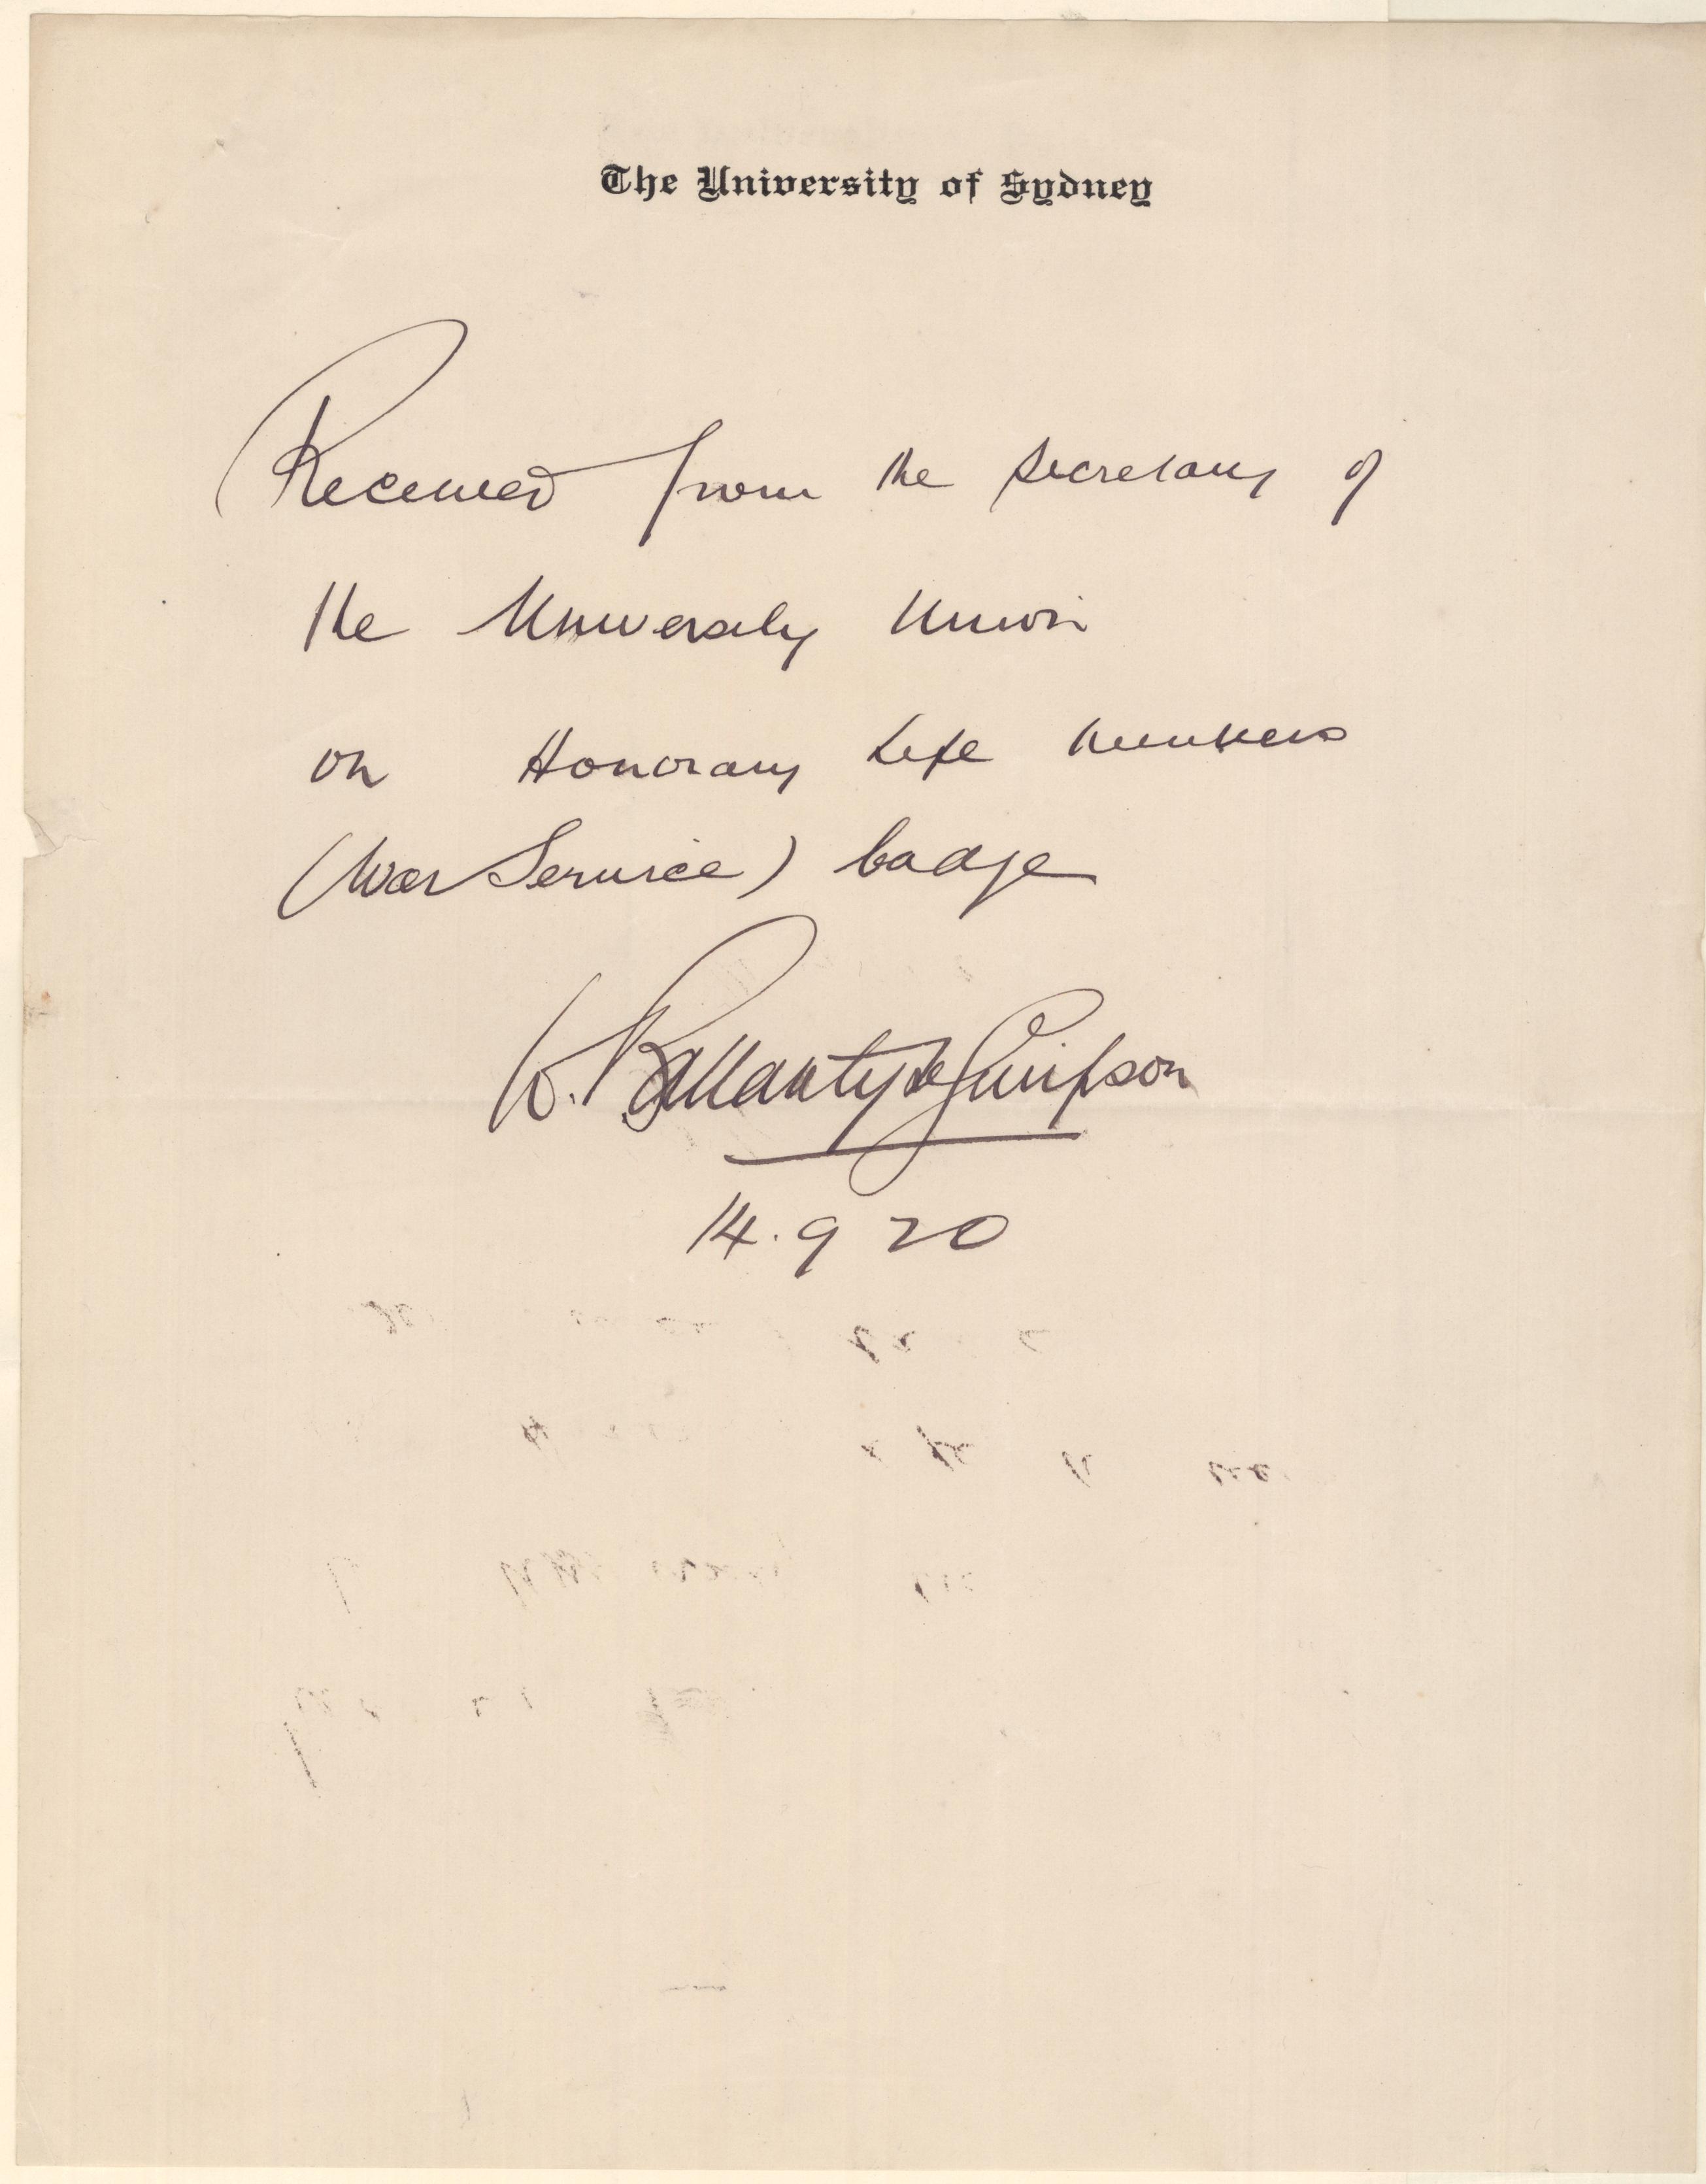 The University of Sydney
Received from the Secretary of
the University Union
on Honorary Life Members
(War Service) badge
W. Ballantyne Simpson
14.9 20